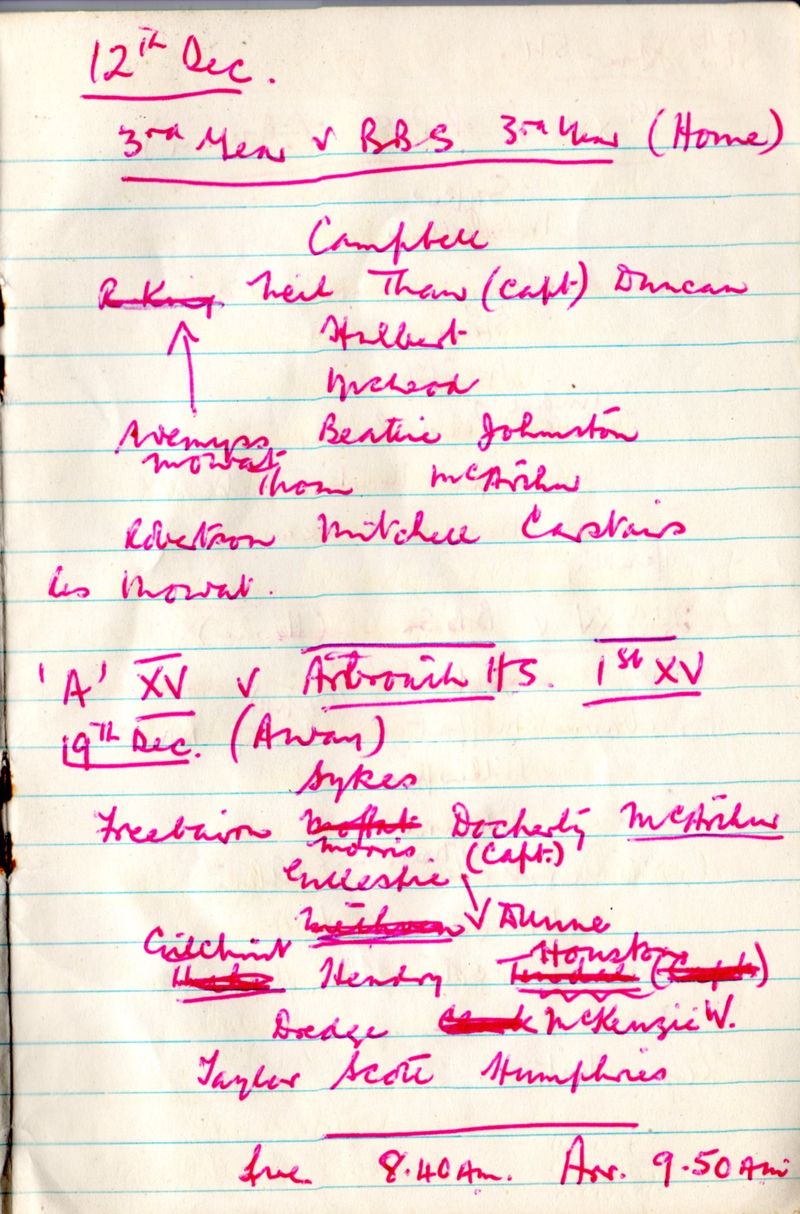 12th Dec.
3rd Year v B.B.S. 3rd Year (Home)
Campbell
R King Neil Thaw (Capt.) Duncan
Hulbert
McLeod
Avemyss Beattie Johnston
Mowat
Thom McArthur
Robertson Mitchell Carstairs
Res Mowat.
'A' XV v Arbroath HS. 1st XV
19th Dec. (Away)
Sykes
Freebairn Moffat Docherty McArthur
Morris (Capt.)
Gillespie
Methven Dunne
Gilchrist Houston
Hendry (Capt.)
Dredge Clark McKenzie W.
Taylor Scott Humphries
Lve. 8.40 Am. Arr. 9.50 Am